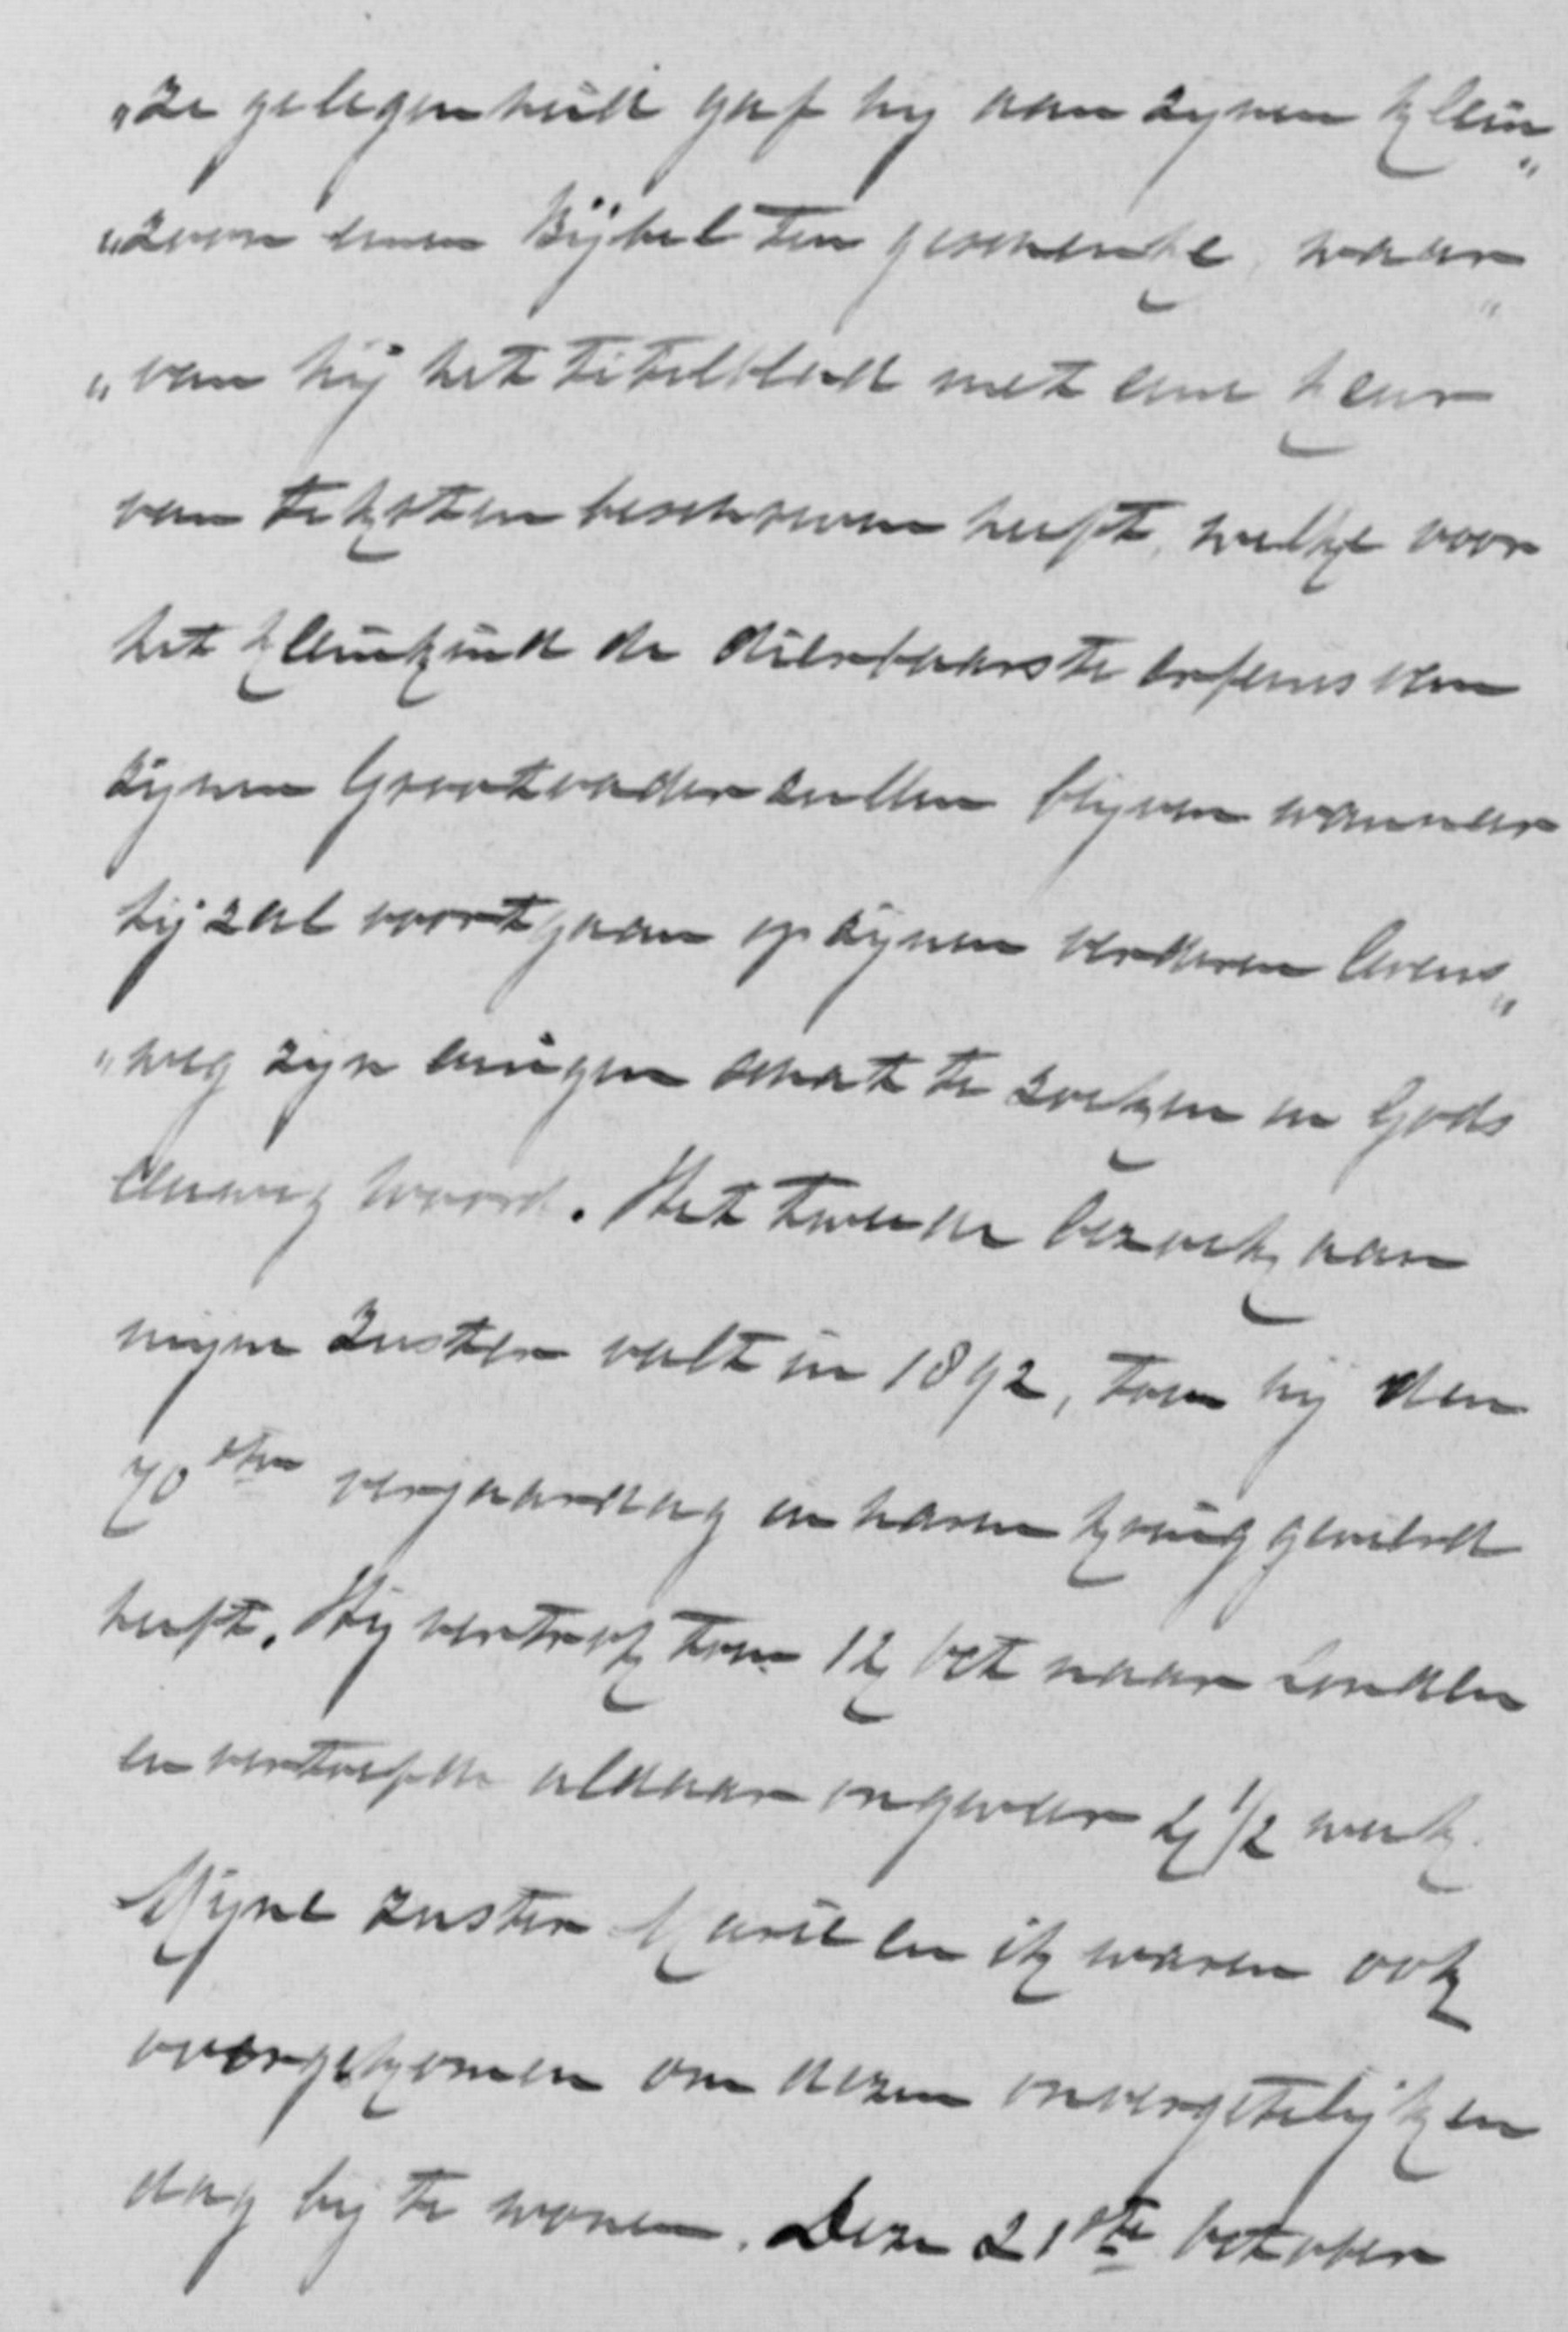 „ze gelegenheid gaf hij aan zijnen klein„
„zoon eenen Bijbel ten geschenke, waar„
„van hij het titelblad met eene keur
van teksten beschreven heeft, welke voor
het kleinkind de dierbaarste erfenis van
zijnen Grootvader zullen blijven wanneer
hij zal voortgaan op zijnen verderen levens„
„weg zijn eenigen schat te zoeken in Gods
eeuwig woord. Het tweede bezoek aan
mijne zuster valt in 1892, toen hij den
70sten verjaardag in haren kring gevierd
heeft. Hij vertrok toen 14 Oct naar Londen
en vertoefde aldaar ongeveer 4 1/2 week.
Mijne zuster Marie en ik waren ook
overgekomen om dezen onvergetelijken
dag bij te wonen. Deze 21ste October